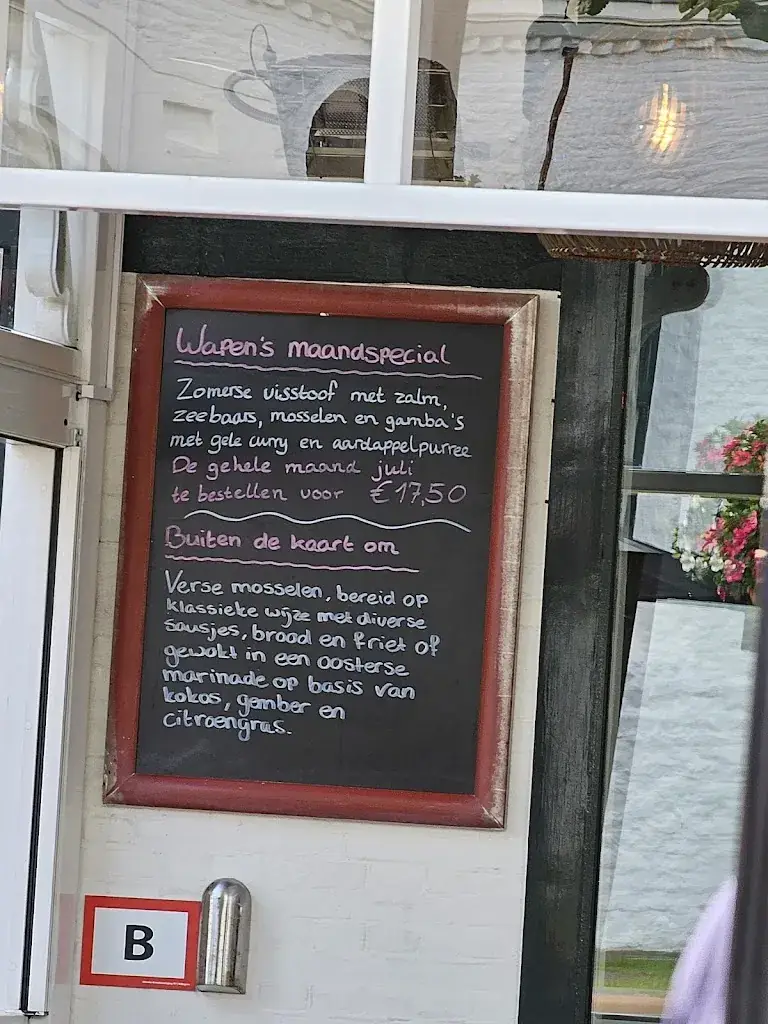 Wapen's maandspecial
Zomerse visstoof met zalm,
zeebaars, mosselen en gamba's
met gele curry en aardappelpurree
De gehele maand juli
te bestellen voor €17,50
Buiten de kaart om
Verse mosselen, bereid op
klassieke wijze met diverse
sausjes, brood en friet of
gewokt in een oosterse
marinade op basis van
kokos, gember en
citroengras.
B